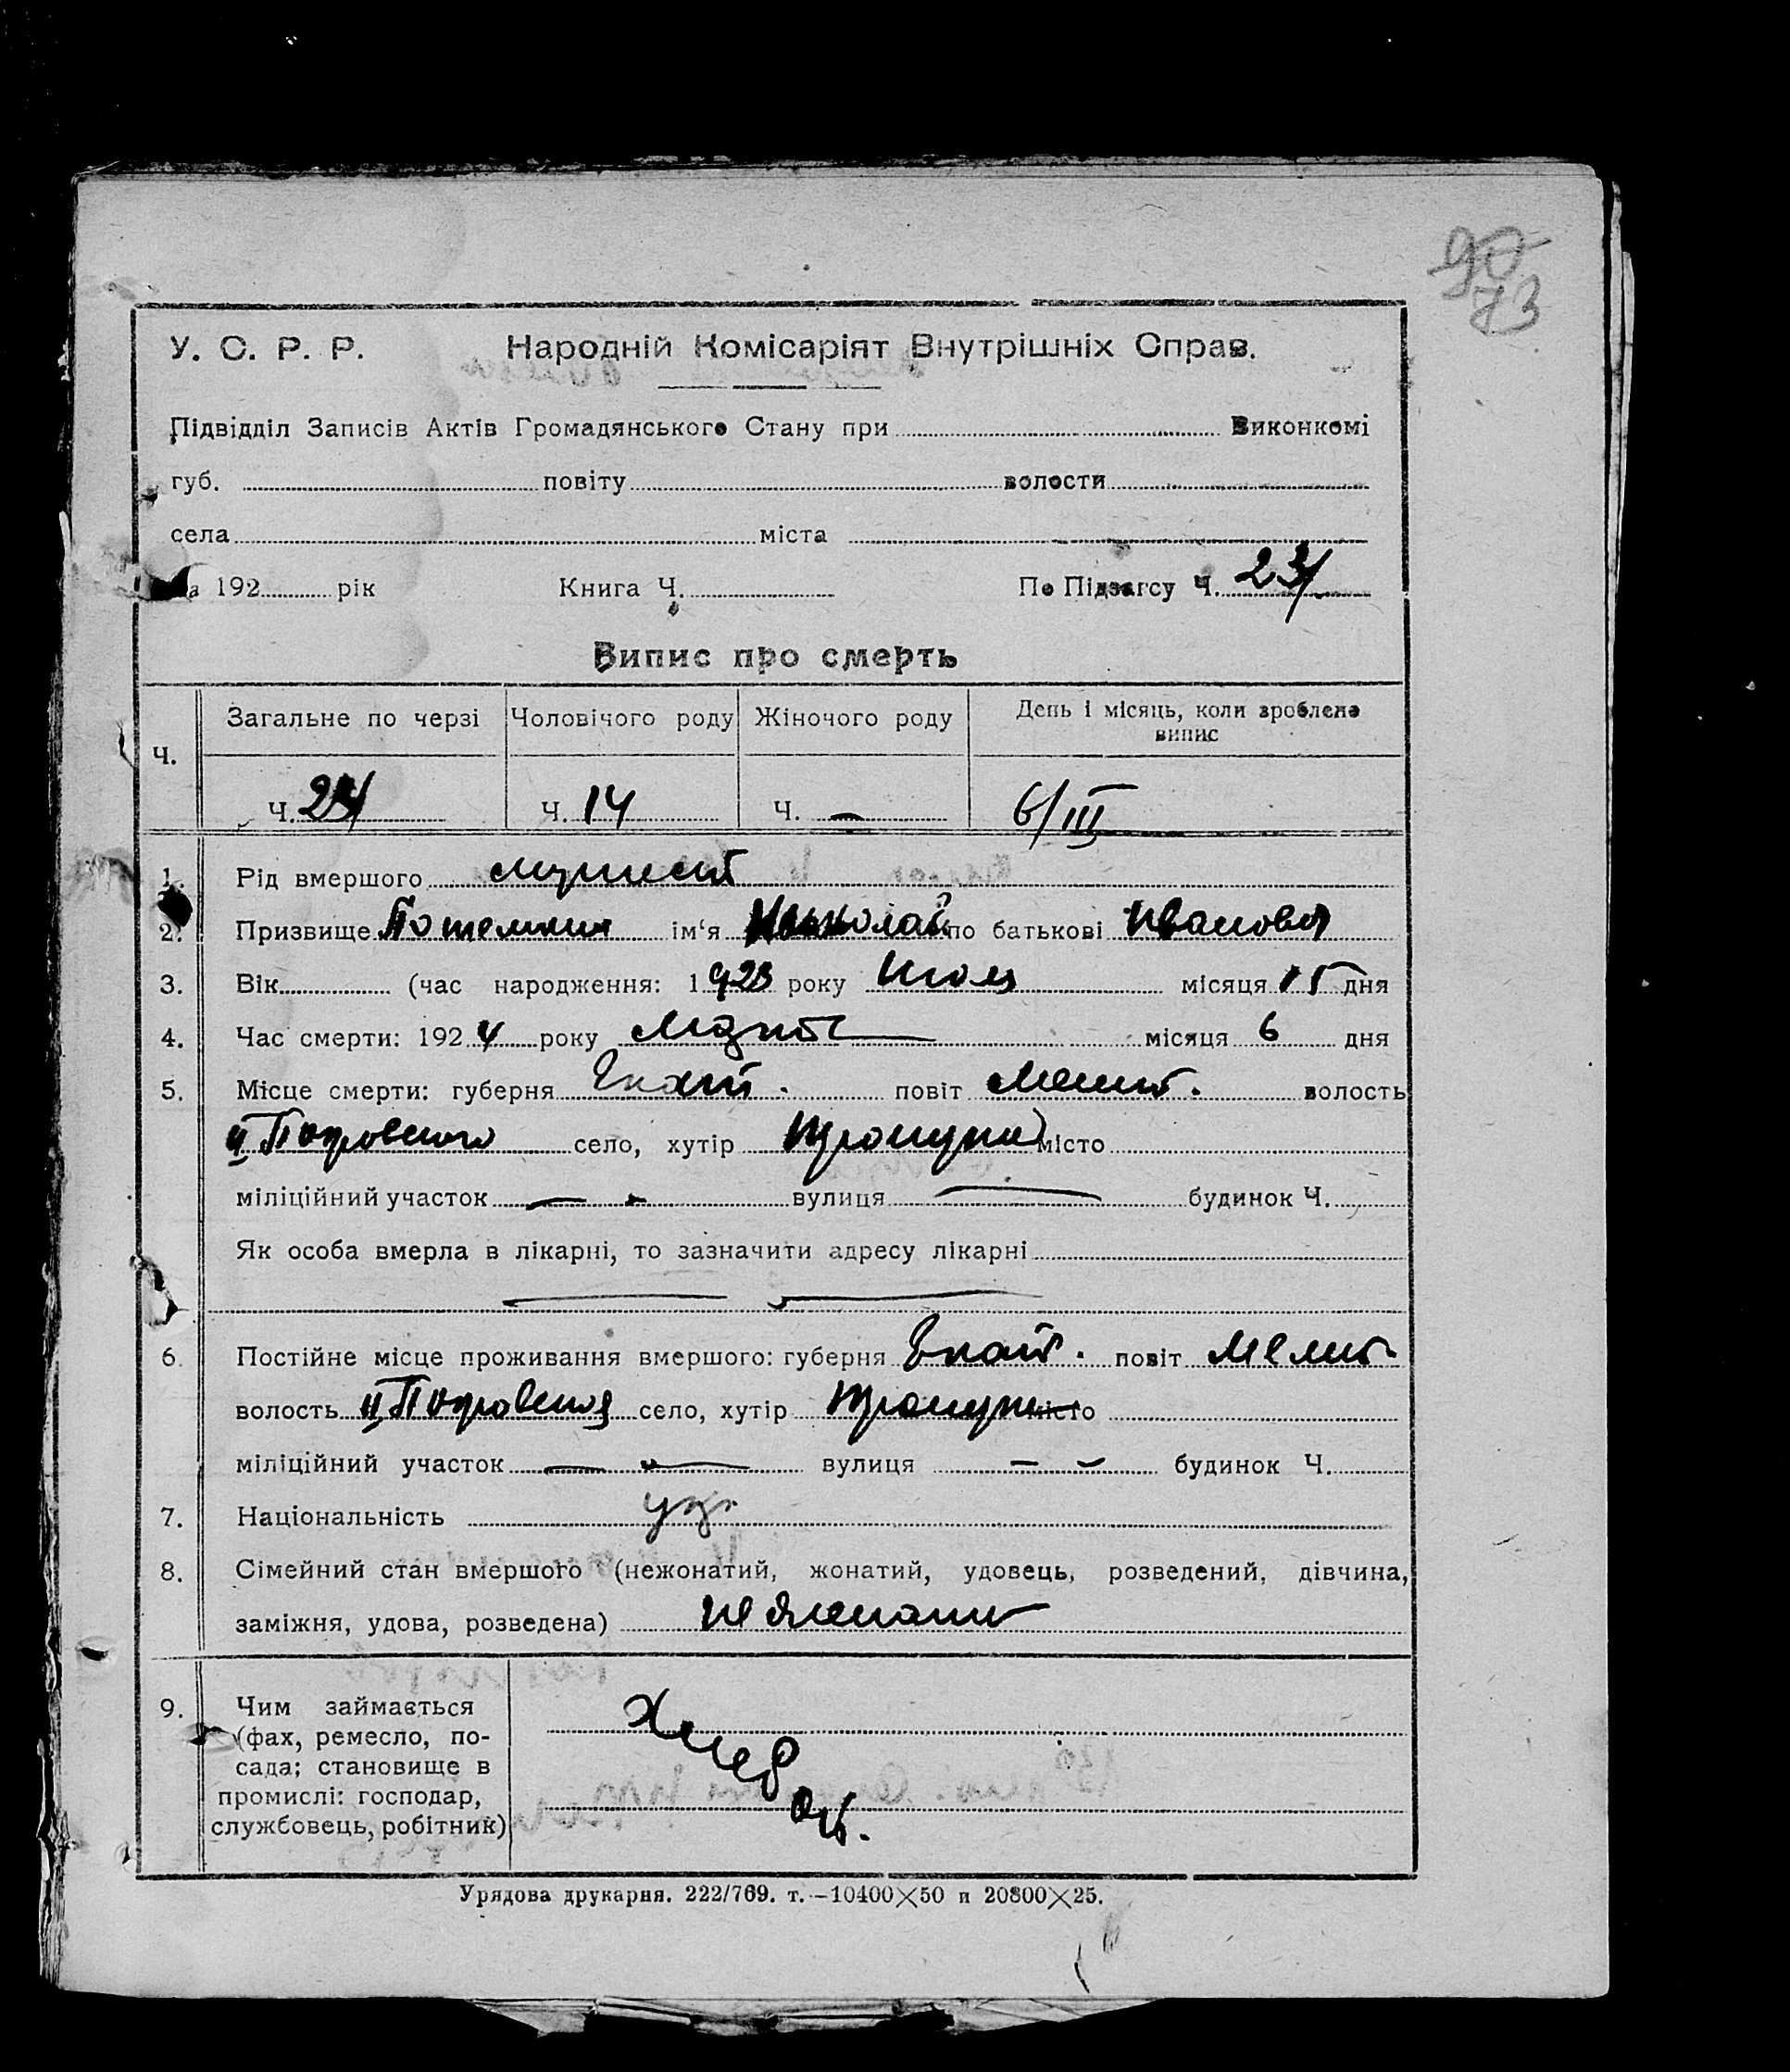 90
73
У. С. Р. Р. Народній Комісаріят Внутрішніх Справ.
Підвідділ Записів Актів Громадянського Стану при Виконкомі
губ. повіту волости
села міста
За 192 рік Книга Ч. По Підзагсу Ч. 23
Випис про смерть
Ч. Загальне по черзі Чоловічого роду Жіночого роду День і місяць, коли зроблено
випис
Ч. Ч. 14 Ч. — 6/III
1. Рід вмершого мужеск
2. Призвище Потемкин ім‘я Николай по батькові Иванов
3. Вік (час народження: 1923 року Июля місяця 15 дня
4. Час смерти: 1924 року Марта місяця 6 дня
5. Місце смерти: губерня Екат. повіт Мелит. волость
II Покровского село, хутір місто
міліційний участок — - вулиця — будинок Ч.
Як особа вмерла в лікарні, то зазначити адресу лікарні
— —
6. Постійне місце проживання вмершого: губерня Екат. повіт Мелит.
волость II Покровская село, хутір місто
міліційний участок — — вулиця — - будинок Ч.
7. Національність укр.
8. Сімейний стан вмершого (нежонатий, жонатий, удовець, розведений, дівчина,
заміжня, удова, розведена)
9. Чим займається
(фах, ремесло, по-
сада; становище в
промислі: господар,
службовець, робітник)
Хлеб
Урядова друкарня. 222/769. т.—10400×50 и 20800×25.